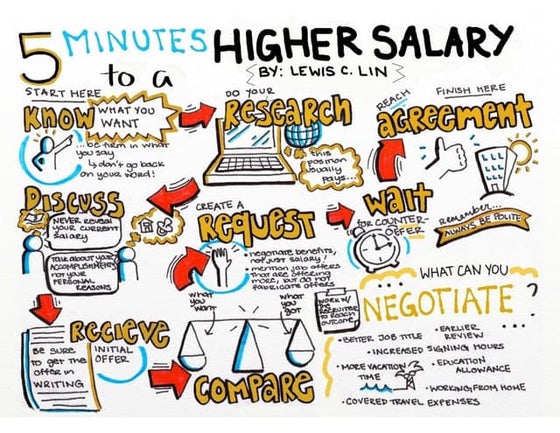 5 MINUTES
to a
HIGHER SALARY
BY: LEWIS C. LIN
START HERE
KNOW
WHAT YOU
WANT
...be firm in what
you say
↳ don't go back
on your word!
DO YOUR
RESEARCH
this
position
usually
pays...
DISCUSS
NEVER REVEAL
YOUR CURRENT
SALARY
TALK ABOUT YOUR
ACCOMPLISHMENTS
NOT YOUR
PERSONAL
REASONS
RECIEVE
INITIAL
OFFER
BE SURE
to get the
offer in
WRITING
COMPARE
what
you
want
what
you
got
CREATE A
REQUEST
• negotiate benefits,
not just salary!
• mention job offers
that are offering
more, but do not
fabricate offers
WORK W/
the
RECRUITER
to REACH
OUTCOME
WAIT
FOR COUNTER-
OFFER
REACH
AGREEMENT
FINISH HERE
remember...
ALWAYS BE POLITE
WHAT CAN YOU
NEGOTIATE?
• BETTER JOB TITLE
• EARLIER
REVIEW
• INCREASED SIGNING HOURS
• MORE VACATION
TIME
• EDUCATION
ALLOWANCE
• WORKING FROM HOME
• COVERED TRAVEL EXPENSES